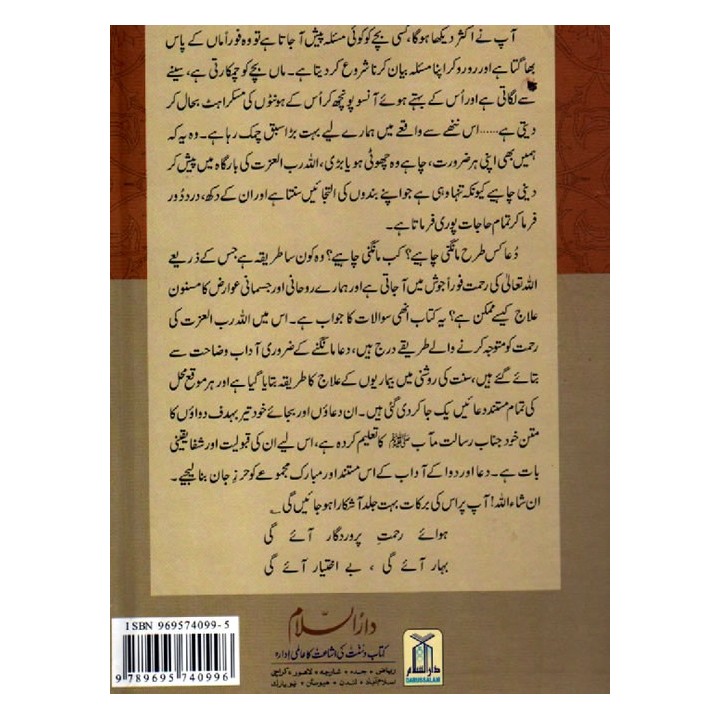 آپ نے اکثر دیکھا ہوگا، کسی بچے کو کوئی مسئلہ پیش آجاتا ہے تو وہ فوراً ماں کے پاس
بھاگتا ہے اور رو رو کر اپنا مسئلہ بیان کرنا شروع کر دیتا ہے۔ ماں بچے کو چمکارتی ہے، سینے
سے لگاتی ہے اور اُس کے بہتے ہوئے آنسو پونچھ کر اُس کے ہونٹوں کی مسکراہٹ بحال کر
دیتی ہے ..... اس ننھے سے واقعے میں ہمارے لیے بہت بڑا سبق چمک رہا ہے۔ وہ یہ کہ
ہمیں بھی اپنی ہر ضرورت، چاہے وہ چھوٹی ہو یا بڑی، اللہ رب العزت کی بارگاہ میں پیش کر
دینی چاہیے کیونکہ تنہا وہی ہے جو اپنے بندوں کی التجائیں سنتا ہے اور ان کے دکھ، درد دُور
فرما کر تمام حاجات پوری فرماتا ہے۔
دُعا کس طرح مانگنی چاہیے؟ کب مانگنی چاہیے؟ وہ کون سا طریقہ ہے جس کے ذریعے
اللہ تعالیٰ کی رحمت فوراً جوش میں آجاتی ہے اور ہمارے روحانی اور جسمانی عوارض کا مسنون
علاج کیسے ممکن ہے؟ یہ کتاب انھی سوالات کا جواب ہے۔ اس میں اللہ رب العزت کی
رحمت کو متوجہ کرنے والے طریقے درج ہیں، دعا مانگنے کے ضروری آداب وضاحت سے
بتائے گئے ہیں، سنت کی روشنی میں بیماریوں کے علاج کا طریقہ بتایا گیا ہے اور ہر موقع محل
کی تمام مستند دعائیں یک جا کر دی گئی ہیں۔ ان دعاؤں اور بجائے خود تیر بہدف دواؤں کا
متن خود جناب رسالت مآب ﷺ کا تعلیم کردہ ہے، اس لیے ان کی قبولیت اور شفا یقینی
بات ہے۔ دعا اور دوا کے آداب کے اس مستند اور مبارک مجموعے کو حرزِ جان بنا لیجیے۔
ان شاء اللہ! آپ پر اس کی برکات بہت جلد آشکارا ہو جائیں گی ؎
ہوائے رحمتِ پروردگار آئے گی
بہار آئے گی ، بے اختیار آئے گی
دارُالسّلام
کتاب و سنّت کی اشاعت کا عالمی ادارہ
ریاض • جدہ • شارجہ • لاہور • کراچی
اسلام آباد • لندن • ہیوسٹن • نیویارک
دارالسلام
DARUSSALAM
ISBN 969574099-5
9 789695 740996